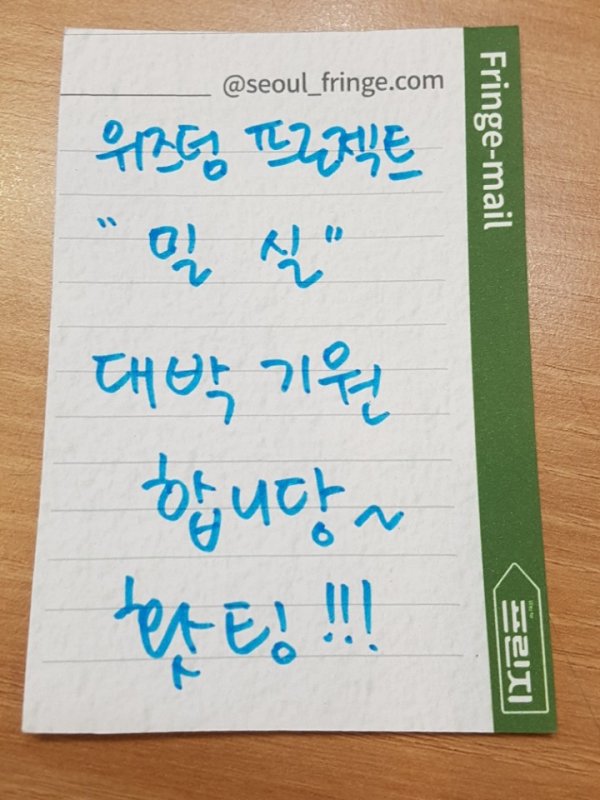 @seoul_fringe.com
위즈덤 프로젝트
" 밀 실"
대박 기원
합니당~
홧팅!!!
Fringe-mail
프린지